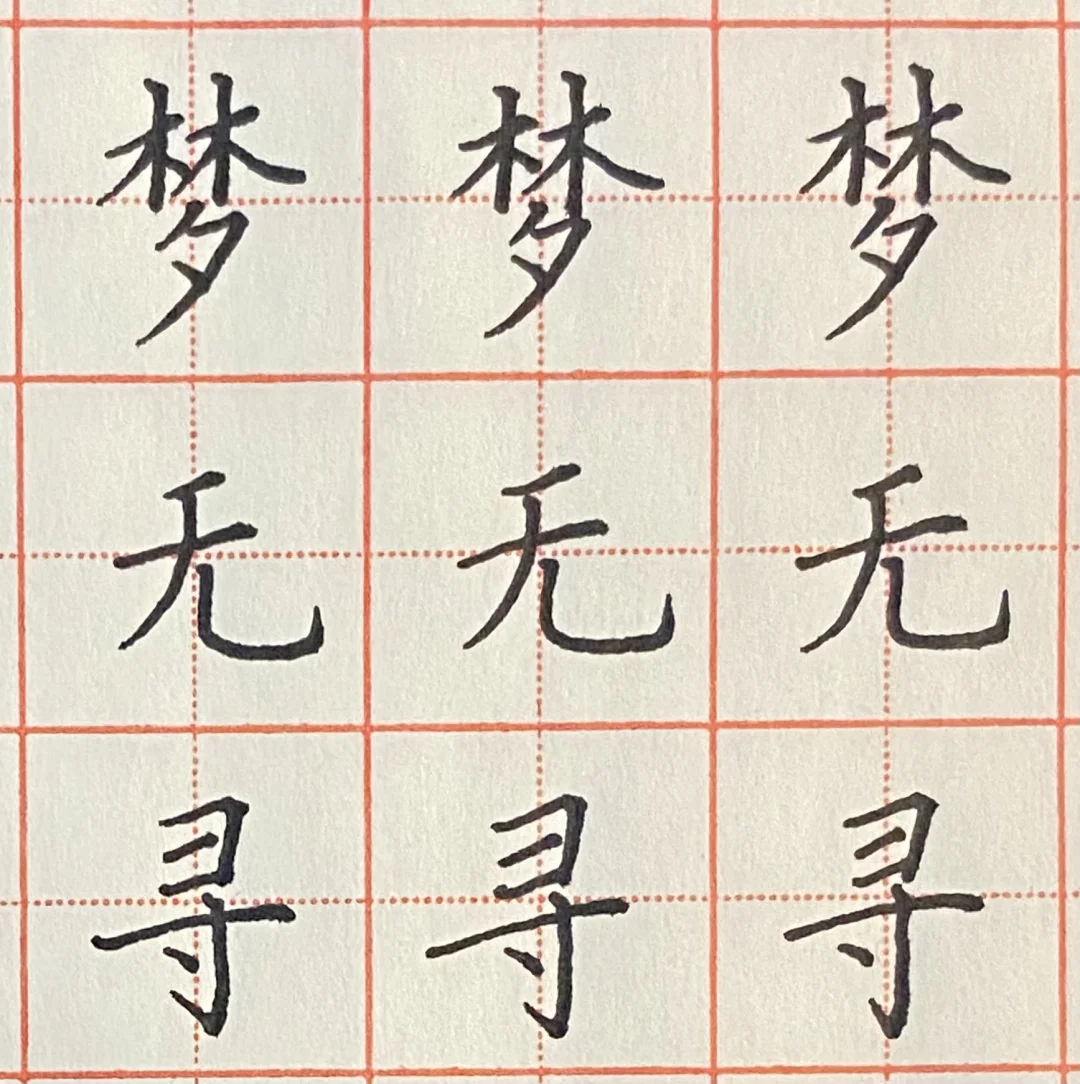 梦梦梦
无无无
寻寻寻